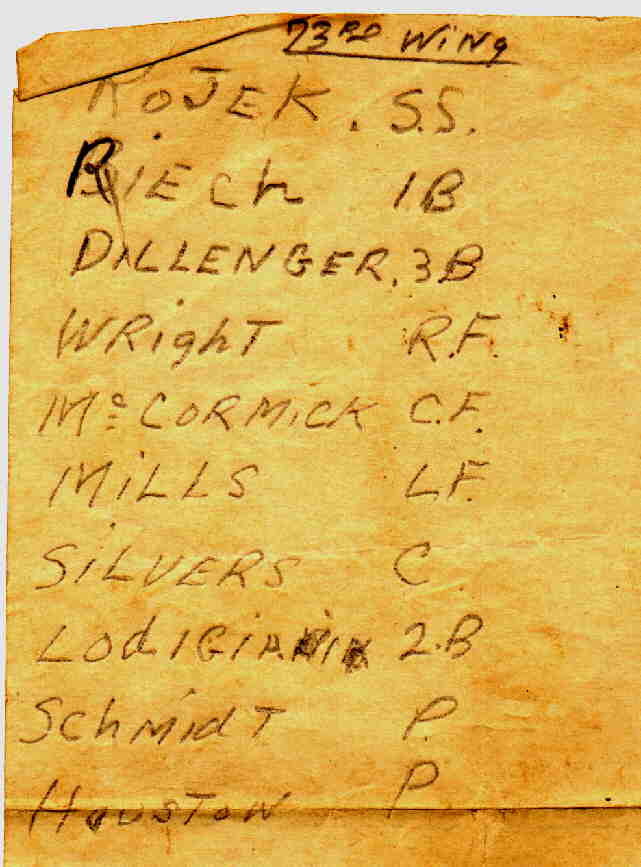 73RD WiNg
KOJEK. S.S.
RIECh 1B
DILLENGER. 3B
WRighT R.F.
McCORMICK C.F.
MiLLS L.F.
SiLVERS C
LOdIGIANI 2.B
SchMidT P.
HOUSTON P